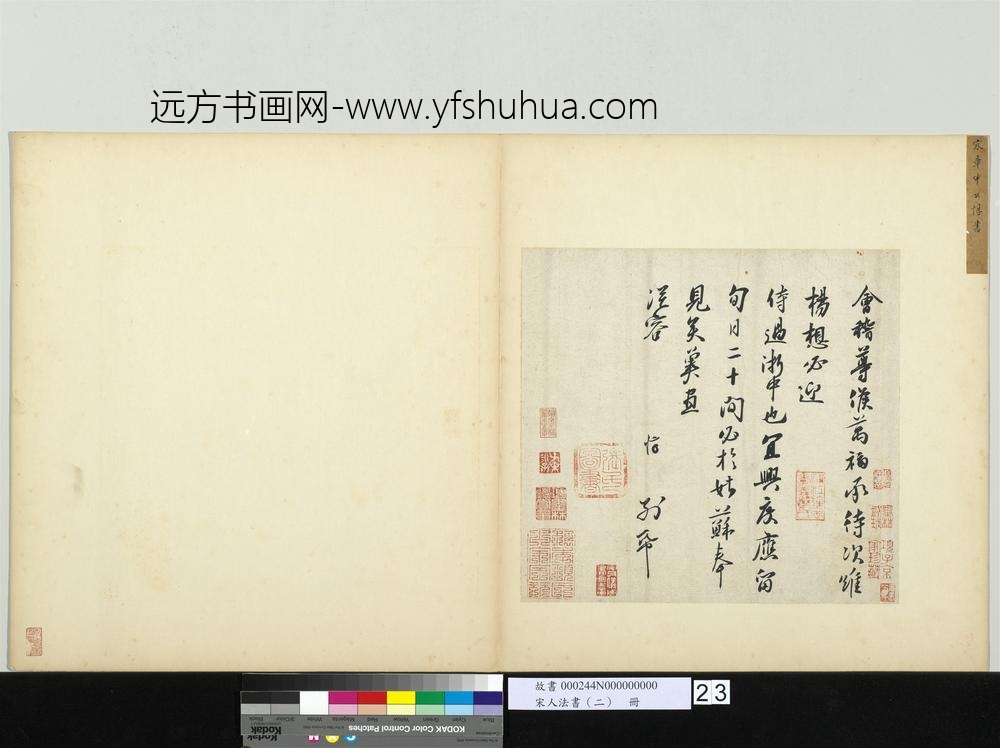 远方书画网-www.yfshuhua.com
會稽尊候萬福承待次維
楊想必迎
侍過浙中也宜興度應留
旬日二十間必於姑蘇奉
見矣莫畫
從容 惇 別帋
故書 000244N000000000
宋人法書（二） 冊
23
Blue
Cyan
Green
Yellow
Red
Magenta
White
3/Color
Black
KODAK Color Control Patches
Kodak